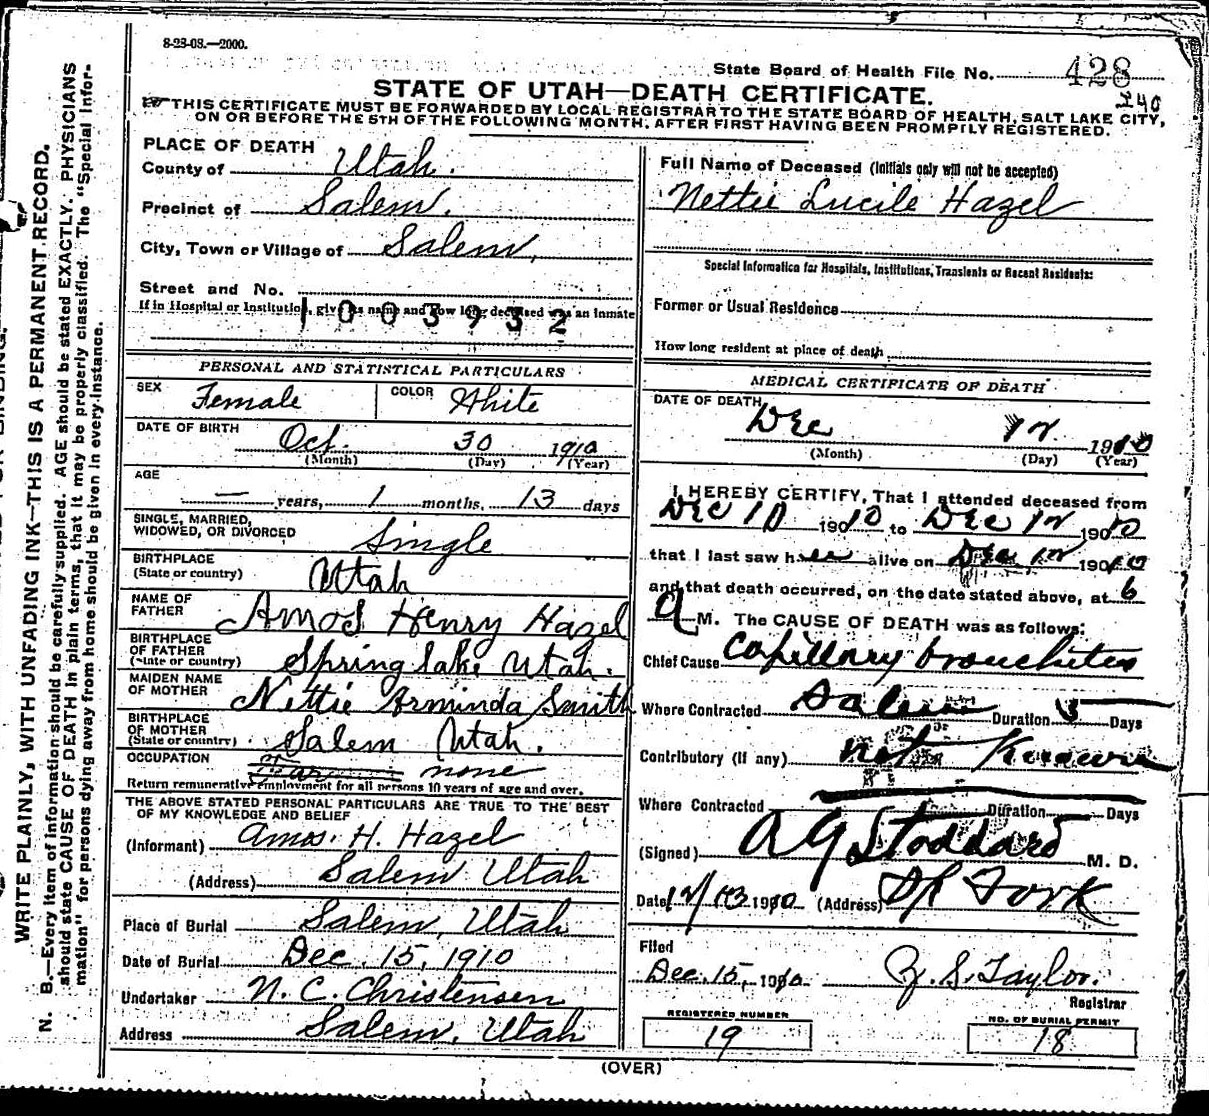 8-23-08.—2000.
State Board of Health File No. 428
240
STATE OF UTAH—DEATH CERTIFICATE.
THIS CERTIFICATE MUST BE FORWARDED BY LOCAL REGISTRAR TO THE STATE BOARD OF HEALTH, SALT LAKE CITY,
ON OR BEFORE THE 5TH OF THE FOLLOWING MONTH, AFTER FIRST HAVING BEEN PROMPTLY REGISTERED.
PLACE OF DEATH
County of Utah.
Precinct of Salem.
City, Town or Village of Salem,
Street and No.
If in Hospital or Institution, give its name and how long deceased was an inmate
1003932
PERSONAL AND STATISTICAL PARTICULARS
SEX Female COLOR White
DATE OF BIRTH Oct. 30 1910
(Month) (Day) (Year)
AGE
— years, 1 months, 13 days
SINGLE, MARRIED,
WIDOWED, OR DIVORCED Single
BIRTHPLACE
(State or country) Utah
NAME OF
FATHER Amos Henry Hazel
BIRTHPLACE
OF FATHER
(State or country) Springlake Utah.
MAIDEN NAME
OF MOTHER Nettie Arminda Smith
BIRTHPLACE
OF MOTHER
(State or country) Salem Utah.
OCCUPATION none
Return remunerative employment for all persons 10 years of age and over.
THE ABOVE STATED PERSONAL PARTICULARS ARE TRUE TO THE BEST
OF MY KNOWLEDGE AND BELIEF
(Informant) Amos. H. Hazel
(Address) Salem Utah
Place of Burial Salem, Utah
Date of Burial Dec. 15, 1910
Undertaker N. C. Christensen
Address Salem, Utah
Full Name of Deceased (Initials only will not be accepted)
Nettie Lucile Hazel
Special Information for Hospitals, Institutions, Transients or Recent Residents:
Former or Usual Residence
How long resident at place of death
MEDICAL CERTIFICATE OF DEATH
DATE OF DEATH
Dec 12 1910
(Month) (Day) (Year)
I HEREBY CERTIFY, That I attended deceased from
Dec 10 1910 to Dec 12 1910
that I last saw her alive on Dec 12 1910
and that death occurred, on the date stated above, at 6
a M. The CAUSE OF DEATH was as follows:
Chief Cause Capillary bronchites
Where Contracted Salem Duration 5 Days
Contributory (if any) not Known
Where Contracted Duration Days
(Signed) A G Stoddard M. D.
Date 12/13 1910 (Address) Sp Fork
Filed
Dec. 15, 1910. Z. S. Taylor.
Registrar
REGISTERED NUMBER
19
NO. OF BURIAL PERMIT
18
(OVER)
WRITE PLAINLY, WITH UNFADING INK—THIS IS A PERMANENT RECORD.
N. B.—Every item of information should be carefully supplied. AGE should be stated EXACTLY. PHYSICIANS
should state CAUSE OF DEATH in plain terms, that it may be properly classified. The "Special Infor-
mation" for persons dying away from home should be given in every instance.